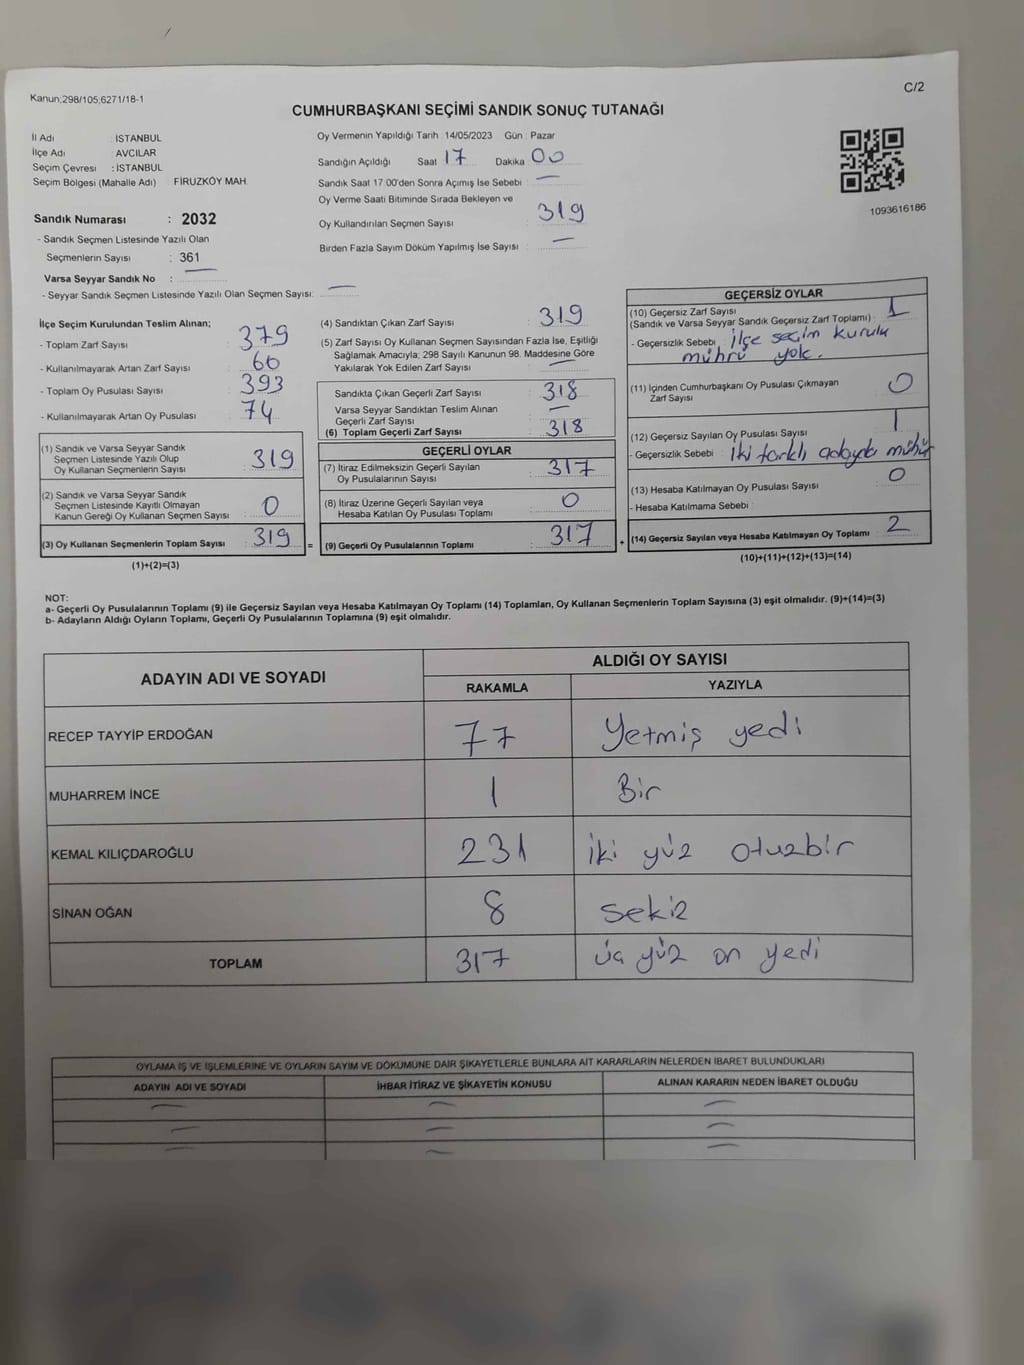 Kanun;298/105;6271/18-1
C/2
CUMHURBAŞKANI SEÇİMİ SANDIK SONUÇ TUTANAĞI
İl Adı : İSTANBUL
İlçe Adı : AVCILAR
Seçim Çevresi : İSTANBUL
Seçim Bölgesi (Mahalle Adı) FİRUZKÖY MAH.
Sandık Numarası : 2032
- Sandık Seçmen Listesinde Yazılı Olan
Seçmenlerin Sayısı : 361
Varsa Seyyar Sandık No :
- Seyyar Sandık Seçmen Listesinde Yazılı Olan Seçmen Sayısı:
Oy Vermenin Yapıldığı Tarih 14/05/2023 Gün : Pazar
Sandığın Açıldığı Saat 17 Dakika 00
Sandık Saat 17.00'den Sonra Açımış İse Sebebi :
Oy Verme Saati Bitiminde Sırada Bekleyen ve
Oy Kullandırılan Seçmen Sayısı : 319
Birden Fazla Sayım Döküm Yapılmış İse Sayısı :
1093616186
İlçe Seçim Kurulundan Teslim Alınan;
- Toplam Zarf Sayısı : 379
- Kullanılmayarak Artan Zarf Sayısı : 60
- Toplam Oy Pusulası Sayısı : 393
- Kullanılmayarak Artan Oy Pusulası : 74
(1) Sandık ve Varsa Seyyar Sandık
Seçmen Listesinde Yazılı Olup
Oy Kullanan Seçmenlerin Sayısı : 319
(2) Sandık ve Varsa Seyyar Sandık
Seçmen Listesinde Kayıtlı Olmayan
Kanun Gereği Oy Kullanan Seçmen Sayısı : 0
(3) Oy Kullanan Seçmenlerin Toplam Sayısı : 319 =
(1)+(2)=(3)
(4) Sandıktan Çıkan Zarf Sayısı : 319
(5) Zarf Sayısı Oy Kullanan Seçmen Sayısından Fazla İse, Eşitliği
Sağlamak Amacıyla; 298 Sayılı Kanunun 98. Maddesine Göre
Yakılarak Yok Edilen Zarf Sayısı :
Sandıkta Çıkan Geçerli Zarf Sayısı : 318
Varsa Seyyar Sandıktan Teslim Alınan
Geçerli Zarf Sayısı :
(6) Toplam Geçerli Zarf Sayısı : 318
GEÇERLİ OYLAR
(7) İtiraz Edilmeksizin Geçerli Sayılan
Oy Pusulalarının Sayısı : 317
(8) İtiraz Üzerine Geçerli Sayılan veya
Hesaba Katılan Oy Pusulası Toplamı : 0
(9) Geçerli Oy Pusulalarının Toplamı : 317 +
GEÇERSİZ OYLAR
(10) Geçersiz Zarf Sayısı
(Sandık ve Varsa Seyyar Sandık Geçersiz Zarf Toplamı) : 1
- Geçersizlik Sebebi : ilçe seçim kurulu
mührü yok.
(11) İçinden Cumhurbaşkanı Oy Pusulası Çıkmayan
Zarf Sayısı : 0
(12) Geçersiz Sayılan Oy Pusulası Sayısı : 1
- Geçersizlik Sebebi : iki farklı adayda mühür
(13) Hesaba Katılmayan Oy Pusulası Sayısı : 0
- Hesaba Katılmama Sebebi :
(14) Geçersiz Sayılan veya Hesaba Katılmayan Oy Toplamı : 2
(10)+(11)+(12)+(13)=(14)
NOT:
a- Geçerli Oy Pusulalarının Toplamı (9) ile Geçersiz Sayılan veya Hesaba Katılmayan Oy Toplamı (14) Toplamları, Oy Kullanan Seçmenlerin Toplam Sayısına (3) eşit olmalıdır. (9)+(14)=(3)
b- Adayların Aldığı Oyların Toplamı, Geçerli Oy Pusulalarının Toplamına (9) eşit olmalıdır.
ADAYIN ADI VE SOYADI ALDIĞI OY SAYISI
RAKAMLA YAZIYLA
RECEP TAYYİP ERDOĞAN 77 Yetmiş yedi
MUHARREM İNCE 1 Bir
KEMAL KILIÇDAROĞLU 231 iki yüz otuzbir
SİNAN OĞAN 8 sekiz
TOPLAM 317 üç yüz on yedi
OYLAMA İŞ VE İŞLEMLERİNE VE OYLARIN SAYIM VE DÖKÜMÜNE DAİR ŞİKAYETLERLE BUNLARA AİT KARARLARIN NELERDEN İBARET BULUNDUKLARI
ADAYIN ADI VE SOYADI İHBAR İTİRAZ VE ŞİKAYETİN KONUSU ALINAN KARARIN NEDEN İBARET OLDUĞU